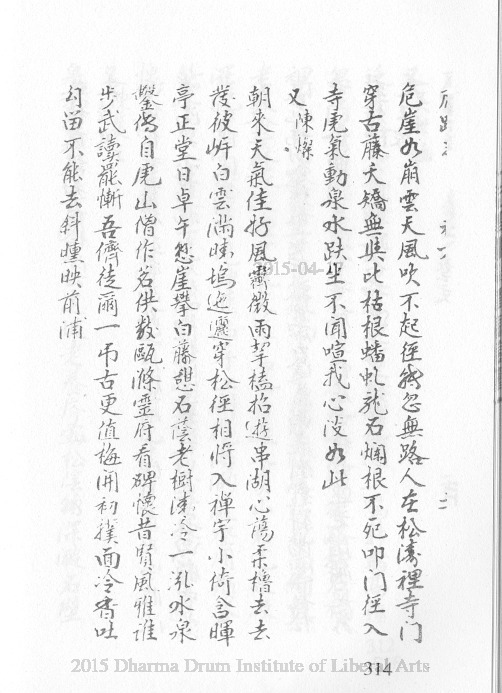 危崖如崩雲天風吹不起徑轉忽無路人在松濤裡寺門
穿古藤夭矯無與比枯根蟠虬龍石爛根不死叩門徑入
寺虎氣動泉水趺坐不聞喧我心沒如此
又陳燦
朝來天氣佳好風霽微雨挈榼招遊串湖心蕩柔櫓去去
彼岍白雲滿晴塢迤邐穿松徑相將入禅宇小倚含暉
亭正堂日卓午懸崖攀白藤憩石蔭老樹清冷一泓水泉
鑿傳自虎山僧作茗供數甌滌靈府看碑懷昔賢風雅誰
步武讀罷慚吾儕徒爾一弔古更值梅開初撲面冷香吐
勾留不能去斜曛映前浦
314
2015-04-
2015 Dharma Drum Institute of Liberal Arts